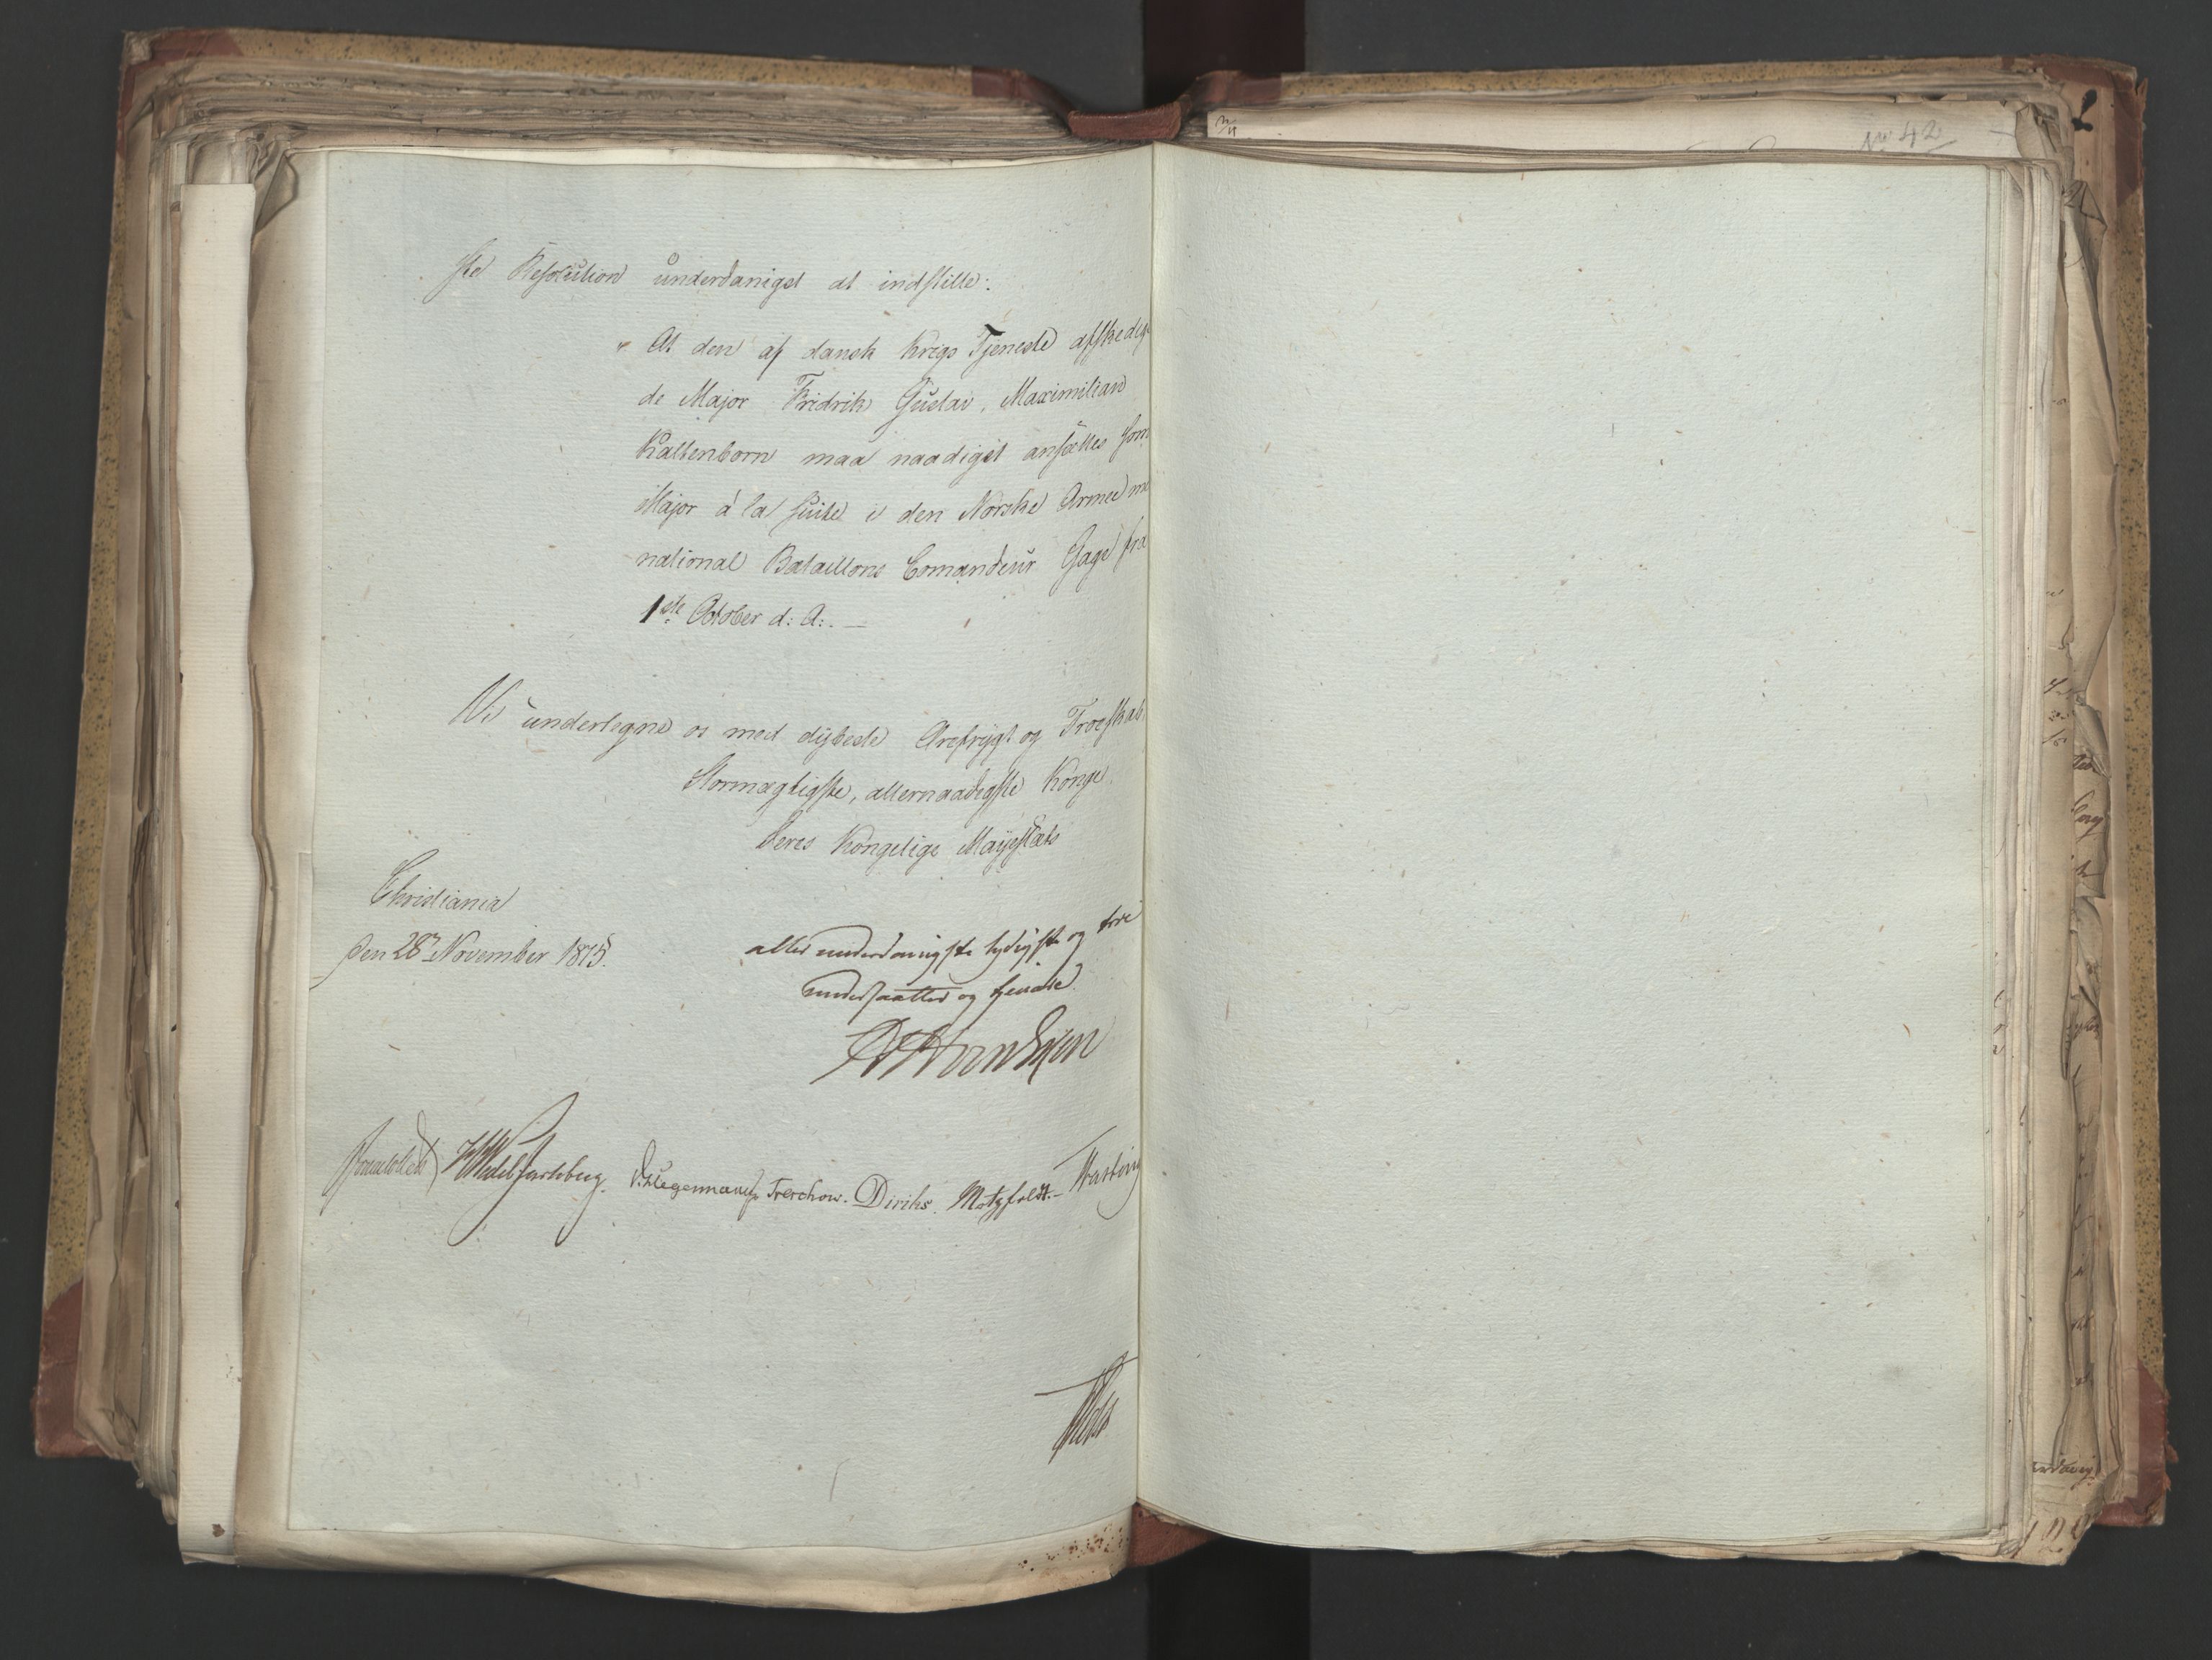 ste Resolution underdanigst at indstille:
" At den af dansk Krigs Tjeneste afskedige
de Major Fridrik Gustav, Maximilian
Kaltenborn maa naadigst ansættes som
Major à la suite i den Norske Armee me
national Bataillons Comandeur Gage fra
1ste October d: A:. —
Vi undertegne os med dybeste Ærefrygt og Troeskab
Stormægtigste, allernaadigste Konge
Deres Kongelige Mayestæts
Christiania
den 28de November 1815.
allerunderdanigste lydigste og troe
undersaatter og tjenere
Sommerhielm HWedel Jarlsberg. D.Hegermann Treschow. Diriks. Motzfeldt.
Holst
№ 42